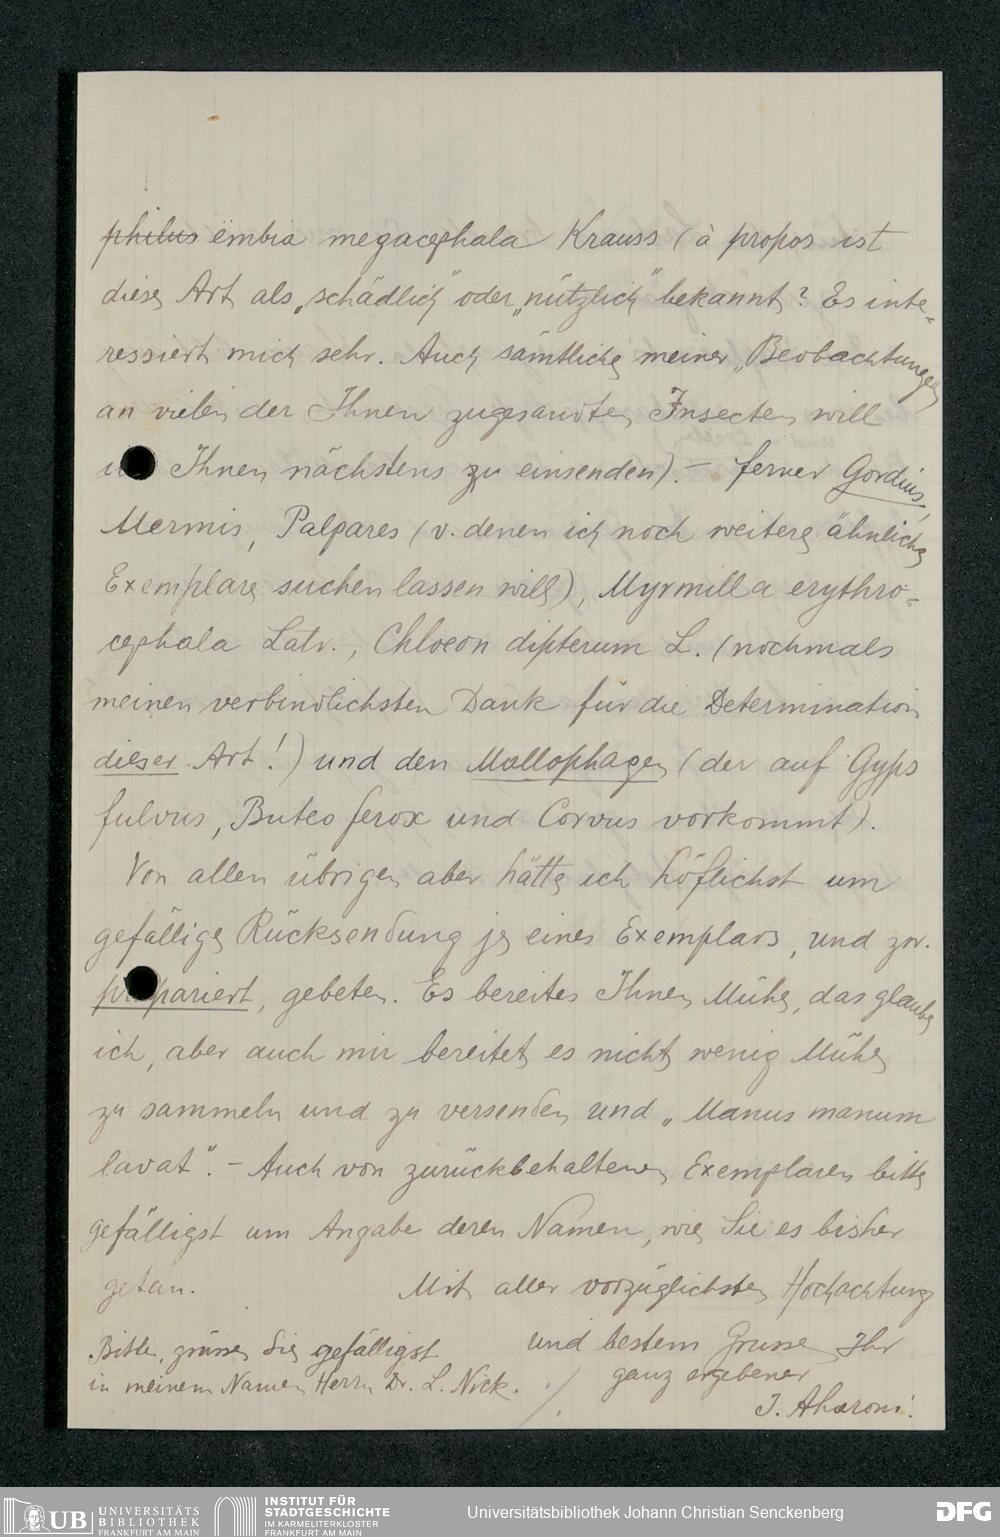 philus ëmbia megacephala Krauss (à propos ist
diese Art als „schädlich" oder „nützlich" bekannt? Es inte-
ressiert mich sehr. Auch sämtliche meiner „Beobachtungen
an vielen der Ihnen zugesandten Insecten will
Ihnen nächstens zu einsenden). – ferner Gordius,
Mermis, Palpares (v. denen ich noch weitere ähnliche
Exemplare suchen lassen will), Myrmilla erythro-
cephala Latr., Chloeon dipterum L. (nochmals
meinen verbindlichsten Dank für die Determination
dieser Art!) und den Mallophagen (der auf Gyps
fulvus, Buteo ferox und Corvus vorkommt).
Von allen übrigen aber hätte ich höflichst um
gefällige Rücksendung je eines Exemplars, und zw.
präpariert, gebeten. Es bereitet Ihnen Mühe, das glaube
ich, aber auch mir bereitet es nicht wenig Mühe
zu sammeln und zu versenden und „Manus manum
lavat". – Auch von zurückbehaltenen Exemplaren bitte
gefälligst um Angabe deren Namen, wie Sie es bisher
getan. Mit aller vorzüglichsten Hochachtung
und bestem Grusse Ihr
ganz ergebener
J. Aharoni.
Bitte, grüssen Sie gefälligst
in meinem Namen Herrn Dr. L. Nick.
UB UNIVERSITÄTS
BIBLIOTHEK
FRANKFURT AM MAIN
INSTITUT FÜR
STADTGESCHICHTE
IM KARMELITERKLOSTER
FRANKFURT AM MAIN
Universitätsbibliothek Johann Christian Senckenberg
DFG